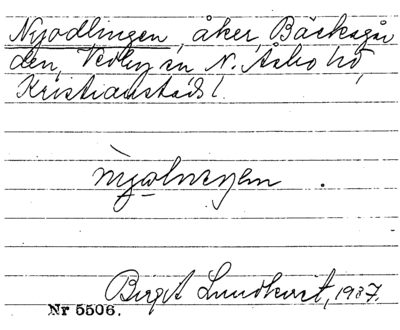 Nyodlingen, åker, Bäcksgår
den, Vedby sn N. Åsbo hd,
Kristianstads l.
Birgit Lundkvist, 1937.
Nr 5506.